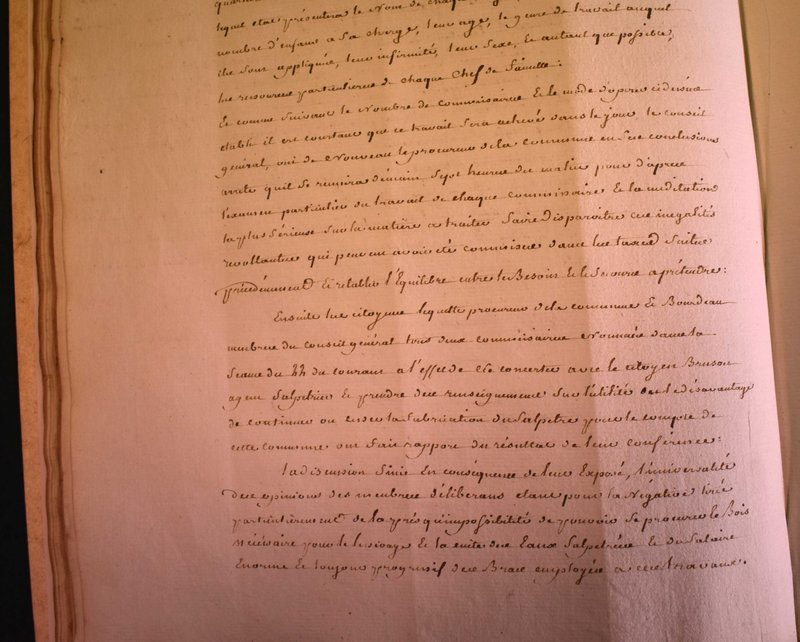 lequel etat présentera le Nom de chaque
nombre d'enfans a Sa charge, leur age, le genre de travail auquel
ils sont appliqués, leur infirmité, leur Sexe, Et autant que possible,
les ressources particulieres de chaque Chef de famille :
Et comme suivant le Nombre de commissaires Et le mode d'operer ci dessus
établi il est constant que ce travail Sera achevé dans le jour, le conseil
général, oui de Nouveau le procureur de la commune en Ses conclusions
arrete qu'il se reunira demain Sept heures du matin pour d'après
l'examen particulier du travail de chaque commissaire Et la meditation
la plus Sérieuse Sur la matière a traiter faire Disparoitre ces inegalités
revoltantes qui peuvent avoir été commises dans les taxes faites
précédemment Et retablir l'Equilibre entre les Besoins Et le Secours a prétendre :
Ensuite les citoyens procureur de la commune Et Bourdeau
membres du Conseil général tous deux commissaires Nommés dans la
Seance du 22 du courant a l'effet de Se concerter avec le citoyen Bruson
agent Salpetrier Et prendre des renseignemens Sur l'utilité ou le désavantage
de continuer ou la fabrication du Salpetre pour le compte de
cette Commune ont fait rapport du résultat de leur conférence :
La discussion finie En conséquence de leur Exposé, l'universalité
des opinions des membres déliberans etant pour la Négative tirée
particulièrement de la présqu'impossibilité de pouvoir Se procurer le Bois
nécessaire pour le lessivage Et la cuite des Eaux Salpetrées Et du Salaire
Enorme Et toujours progressif des Bras employés a ces travaux.